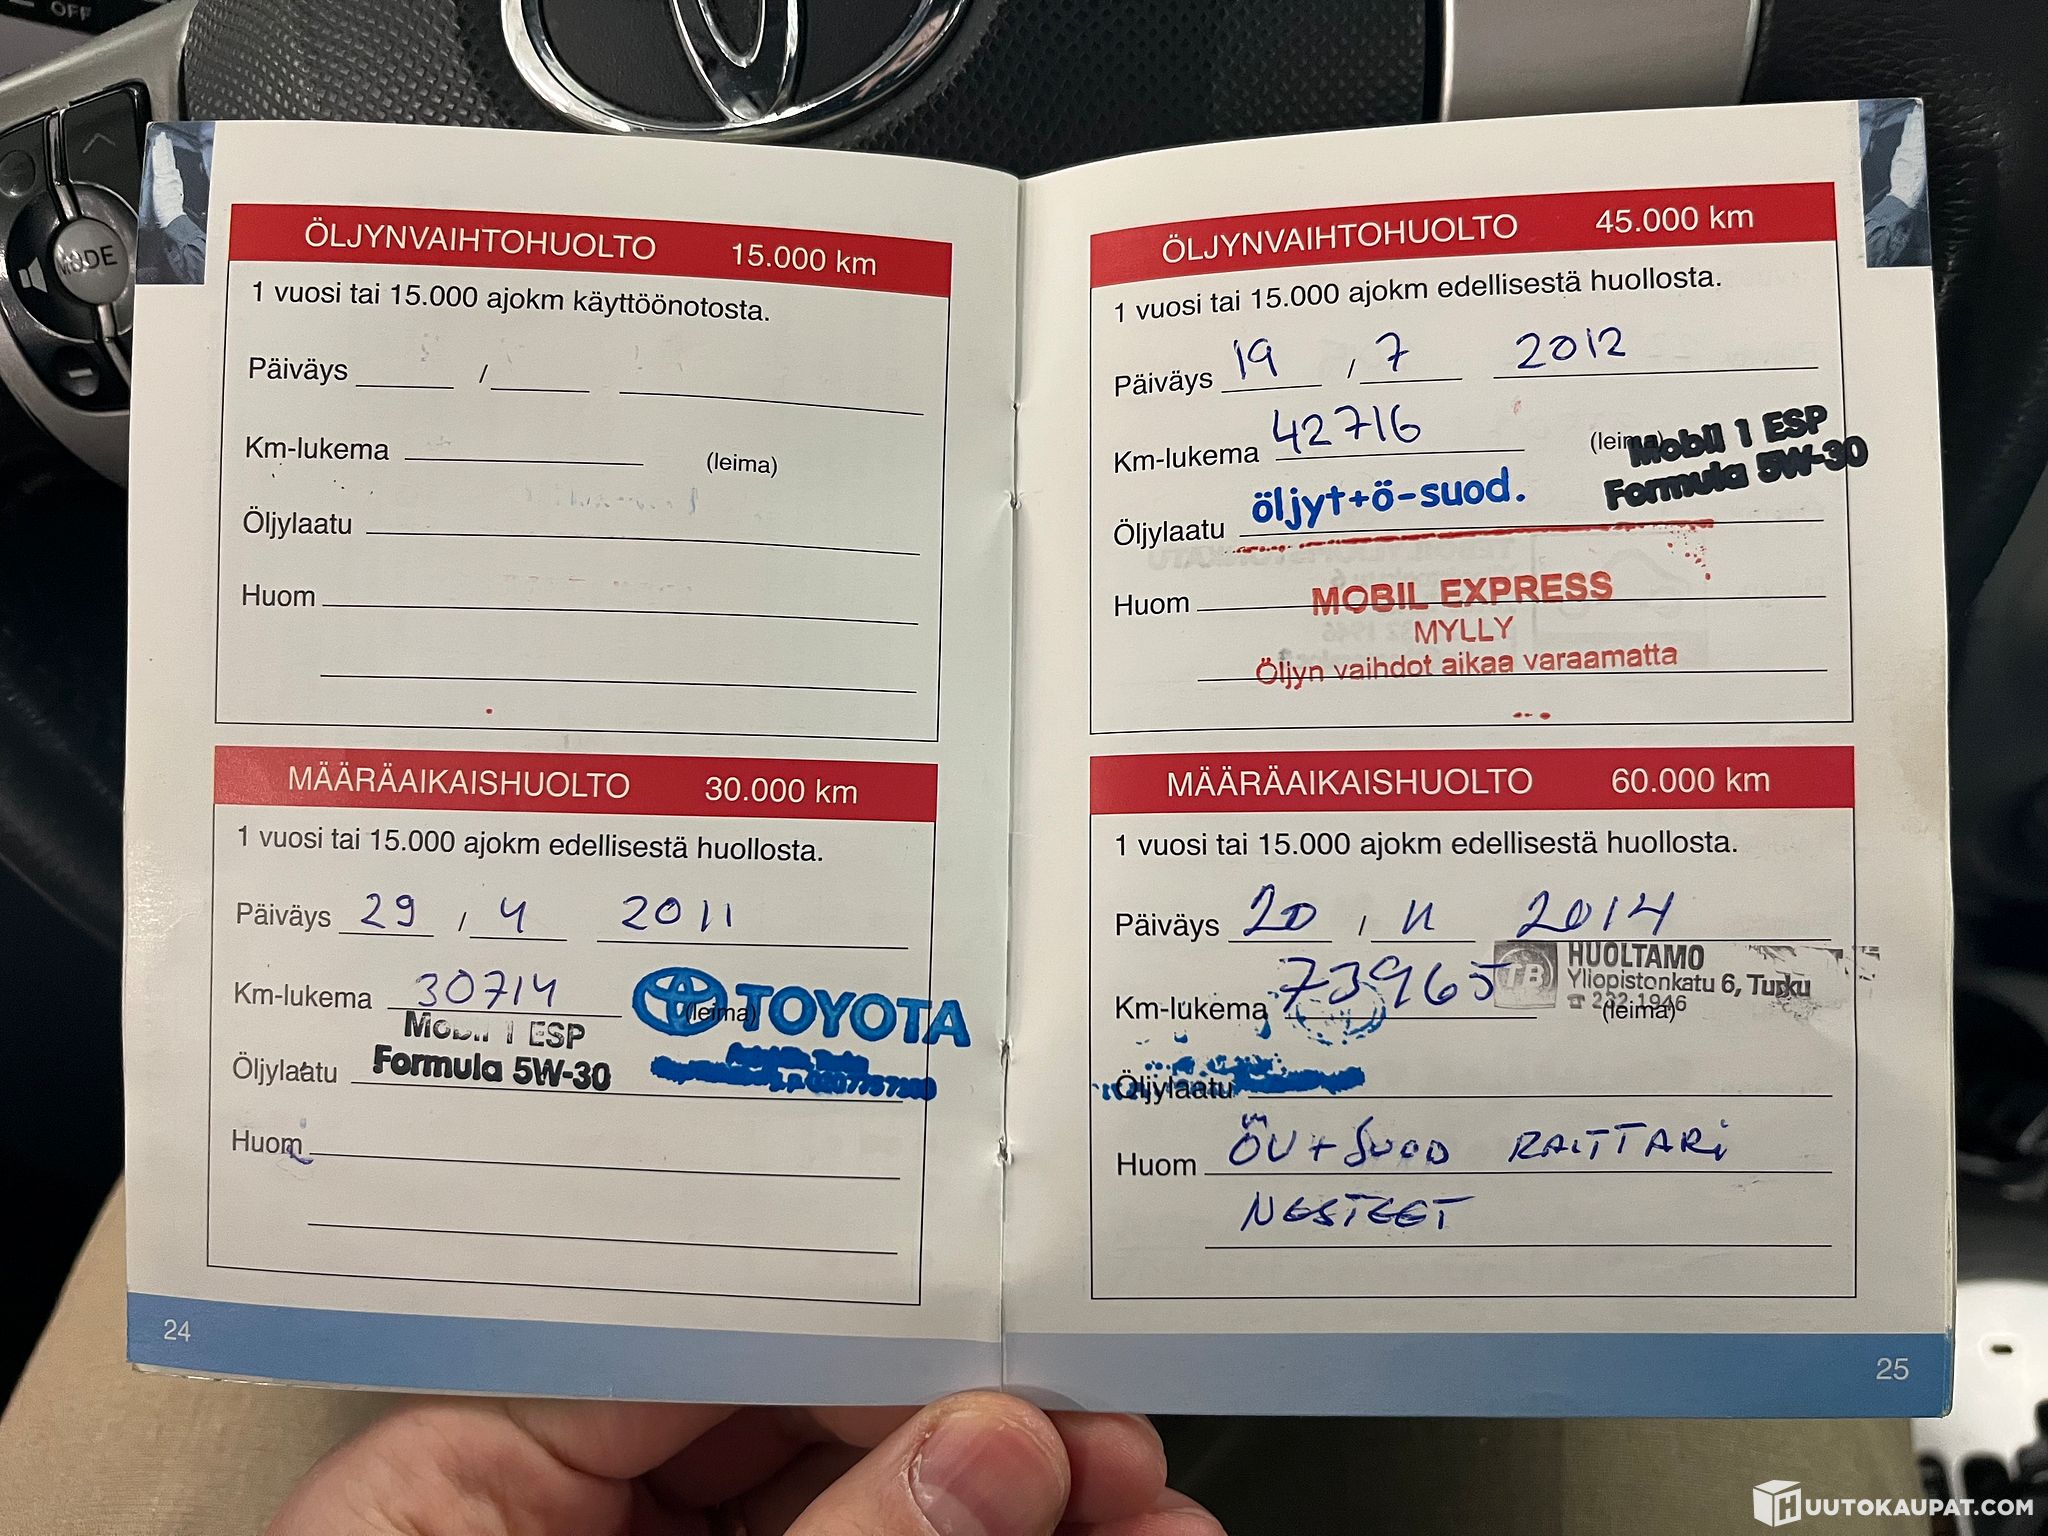 OFF
MODE
ÖLJYNVAIHTOHUOLTO 15.000 km
1 vuosi tai 15.000 ajokm käyttöönotosta.
Päiväys /
Km-lukema (leima)
Öljylaatu
Huom
MÄÄRÄAIKAISHUOLTO 30.000 km
1 vuosi tai 15.000 ajokm edellisestä huollosta.
Päiväys 29 / 4 2011
Km-lukema 30714 (leima) TOYOTA
Mobil 1 ESP
Öljylaatu Formula 5W-30
Huom
24
ÖLJYNVAIHTOHUOLTO 45.000 km
1 vuosi tai 15.000 ajokm edellisestä huollosta.
Päiväys 19 / 7 2012
Km-lukema 42716 (leima) Mobil 1 ESP
Formula 5W-30
Öljylaatu öljyt+ö-suod.
Huom MOBIL EXPRESS
MYLLY
Öljyn vaihdot aikaa varaamatta
MÄÄRÄAIKAISHUOLTO 60.000 km
1 vuosi tai 15.000 ajokm edellisestä huollosta.
Päiväys 20 / 11 2014
TB HUOLTAMO
Yliopistonkatu 6, Turku
Km-lukema 73965 ☎ 232 1946 (leima)
Öljylaatu
Huom ÖV+SUOD RAITTARI
NESTEET
25
HUUTOKAUPAT.COM